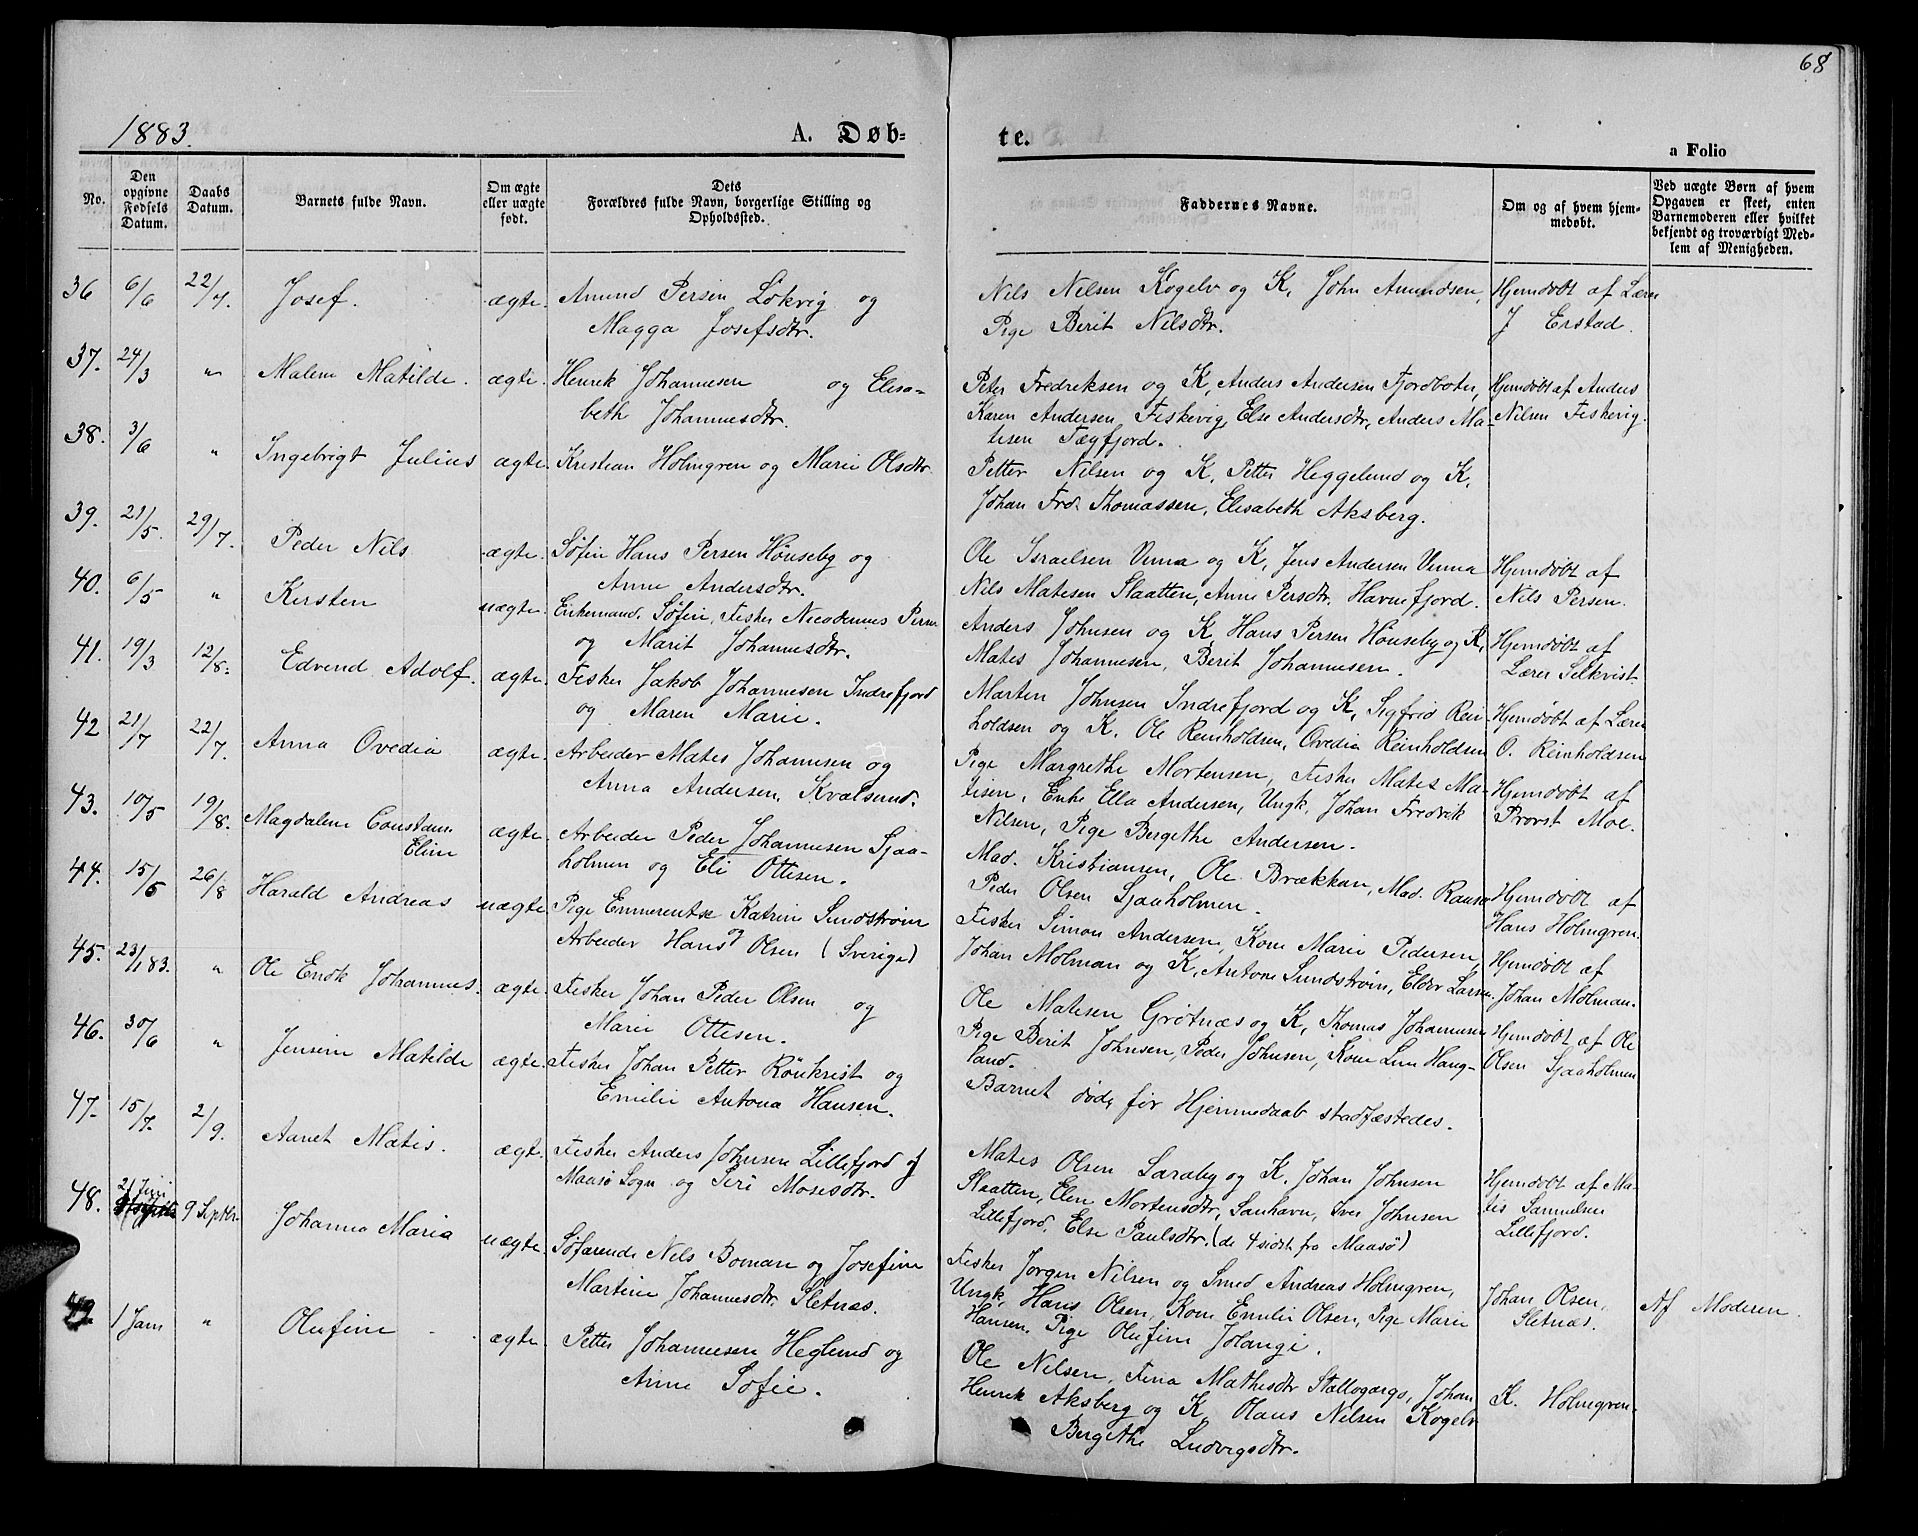 68
1883.
A. Døb-
te.
a Folio
No.
Den opgivne Fødsels Datum.
Daabs Datum.
Barnets fulde Navn.
Om ægte eller uægte født.
Dets
Forældres fulde Navn, borgerlige Stilling og
Opholdssted.
Faddernes Navne.
Om og af hvem hjem-
medøbt.
Ved uægte Børn af hvem
Opgaven er skeet, enten
Barnemoderen eller hvilket
bekjendt og troværdigt Med-
lem af Menigheden.
36 6/6 22/7. Josef. ægte. Amund Persen Lokvig og
Magga Josefsdtr.
Nils Nilsen Kogelv og K, John Amundsen,
Pige Berit Nilsdtr.
Hjemdøbt af Lærer
J Erstad.
37. 24/3 " Malene Matilde. ægte. Henrik Johannesen og Elisa-
beth Johannesdtr.
Peter Fredriksen og K, Anders Andersen Fjordboten,
Karen Andersen, Fiskevig, Else Andersdtr, Anders Ma-
tisen Fægfjord.
Hjemdøbt af Anders
Nilsen Fiskevig.
38. 3/6 " Ingebrigt Julius ægte. Kristian Holmgren og Marie Olsdtr.
Petter Nilsen og K, Petter Heggelund og K,
Johan Frd. Thomassen, Elisabeth Aksberg.
39. 21/5. 29/7. Peder Nils ægte. Søfin Hans Persen Hønseby og
Anne Andersdtr.
Ole Israelsen Vinna og K, Jens Andersen Vinna
Nils Matesen Slaatten, Anne Persdtr. Havnefjord.
Hjemdøbt af
Nils Persen.
40. 6/5 " Kirsten uægte. Enkemand, Søfin, Fisker Nicodemus Persen
og Marit Johannesdtr.
Anders Johnsen og K, Hans Persen Hønseby og K,
Mates Johannesen, Berit Johannesen.
Hjemdøbt af
Lærer Selkvist.
41. 19/3 12/8. Edvend Adolf. ægte. Fisker Jakob Johannesen Indrefjord
og Maren Marie.
Marten Johnsen Indrefjord og K, Sigfrid Rein-
holdsen og K. Ole Reinholdsen, Ovedia Reinholdsen
Hjemdøbt af Lærer
O. Reinholdsen
42 21/7 22/7. Anna Ovedia ægte. Arbeider Mates Johannesen og
Anna Andersen, Kvalsund.
Pige Margrethe Mortensen, Fisker Mates Ma-
tisen, Enke Ella Andersen, Ungk, Johan Fredrik
Nilsen, Pige Bergithe Andersen.
Hjemdøbt af
Provst Moe.
43. 10/5 19/8. Magdalene Constanse
Eline
ægte. Arbeider Peder Johannesen Sjaa-
holmen og Eli Ottesen.
Mad. Kristiansen, Ole Brækkan, Mad. Raasa
Peder Olsen Sjaaholmen.
Hjemdøbt af
Hans Holmgren.
44. 15/5 26/8 Harald Andreas uægte. Pige Emmerentse Katrine Sundstrøm
og
Arbeider Hans Olsen (Sverige)
Fisker Simon Andersen, Kone Marie Pedersen,
Johan Molman og K, Antone Sundstrøm, Eldor Larsen.
Hjemdøbt af
Johan Molman.
45. 23/1 83. " Ole Enok Johannes. ægte. Fisker Johan Peder Olsen og
Marie Ottesen.
Ole Matesen Grøtnæs og K, Thomas Johannesen
Pige Berit Johnsen, Peder Johnsen, Kone Lene Haug-
land.
Hjemdøbt af Ole
Olsen Sjaaholmen
46. 30/6 " Jensine Matilde ægte. Fisker Johan Petter Rønkvist og
Emilie Antona Hansen.
Barnet døde før Hjemmedaab stadfæstedes.
47. 15/7. 2/9. Aanet Matis. ægte. Fisker Anders Johnsen Lillefjord af
Maasø Sogn og Siri Mosesdtr.
Mates Olsen Saraby og K, Johan Johnsen
Slaatten, Elen Mortensdtr, Sanhavn, Iver Johnsen
Lillefjord, Else Paulsdtr. (de 4 sidst. fra Maasø)
Hjemdøbt af Ma-
tis Samuelsen
Lillefjord.
48. 21 Juni 9 Septbr. Johanna Maria uægte. Søfarende Nils Boman og Josefine
Martine Johannesdtr. Sletnæs.
Fisker Jørgen Nilsen og Smed Andreas Holmgren,
Ungk, Hans Olsen, Kone Emilie Olsen, Pige Marie
Hansen, Pige Olufine Jolangi.
Johan Olsen,
Sletnæs.
Af Moderen.
49. 1 Jan " Olufine ægte. Petter Johannesen Heglund og
Anne Sofie.
Ole Nilsen, Fina Mathisdtr Stallogargo, Johan
Henrik Aksberg og K, Olaus Nilsen Kogelv
Bergithe Ludvigsdtr.
K. Holmgren.